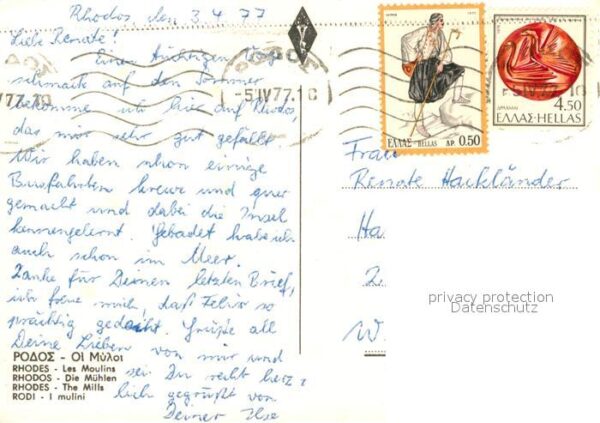 Rhodos, den 3.4.77
Liebe Renate!
Einen tüchtigen
schmack auf den Sommer
bekomme ich hier auf Rhodos,
das mir sehr gut gefällt
Wir haben schon einige
Busfahrten kreuz und quer
gemacht und dabei die Insel
kennengelernt. Gebadet habe ich
auch schon im Meer.
Danke für Deinen letzten Brief,
ich freue mich, daß Felix so
prächtig gedeiht. Grüße all
Deine Lieben von mir und
sei Du recht herz-
lich gegrüßt von
Deiner Ilse
ΡΟΔΟΣ - Οἱ Μύλοι
RHODES - Les Moulins
RHODOS - Die Mühlen
RHODES - The Mills
RODI - I mulini
ΡΟΔΟΣ
-5 IV 77.
IV 77.10
ΕΛΛΑΣ HELLAS ΔΡ. 0.50
ΔΡΑΧΜΑΙ 4.50
ΕΛΛΑΣ-HELLAS
Frau
Renate Hackländer
Ha
W.
privacy protection
Datenschutz